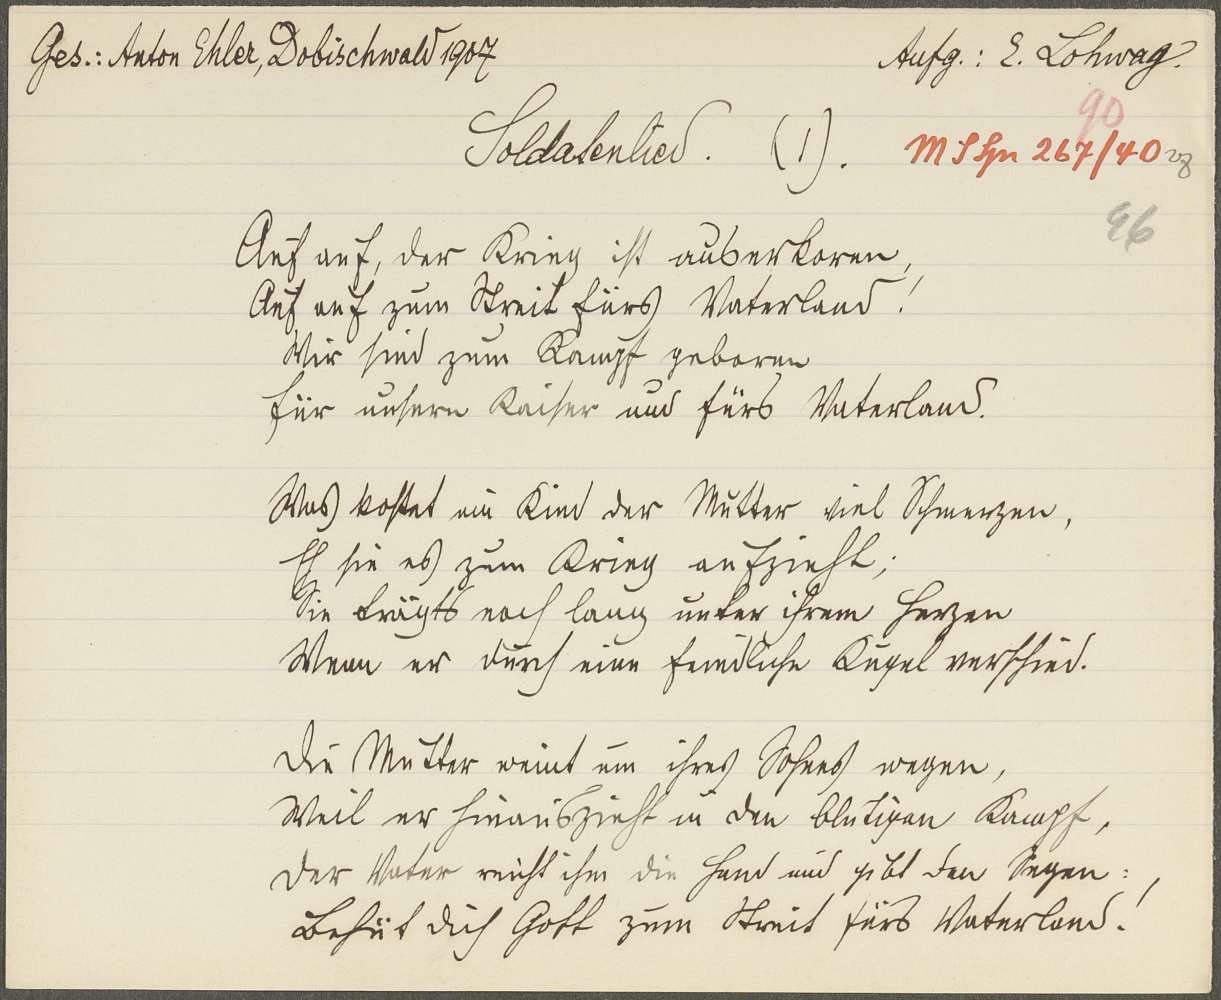 Ges.: Anton Ehler, Dobischwald 1907
Aufg.: E. Lohwag.
90
Soldatenlied. (1).
MSSgn 267/40
96
Auf auf, der Krieg ist auserkoren,
Auf auf zum Streit fürs Vaterland!
Wir sind zum Kampf geboren
Für unsern Kaiser und fürs Vaterland.
Was kostet ein Kind der Mutter viel Schmerzen,
Eh sie es zum Krieg aufzieht;
Sie trägts noch lang unter ihrem Herzen
Wenn er durch eine feindliche Kugel verschied.
Die Mutter weint um ihres Sohnes wegen,
Weil er hinauszieht in den blutigen Kampf,
Der Vater reicht ihm die Hand und gibt den Segen:
Behüt dich Gott zum Streit fürs Vaterland!